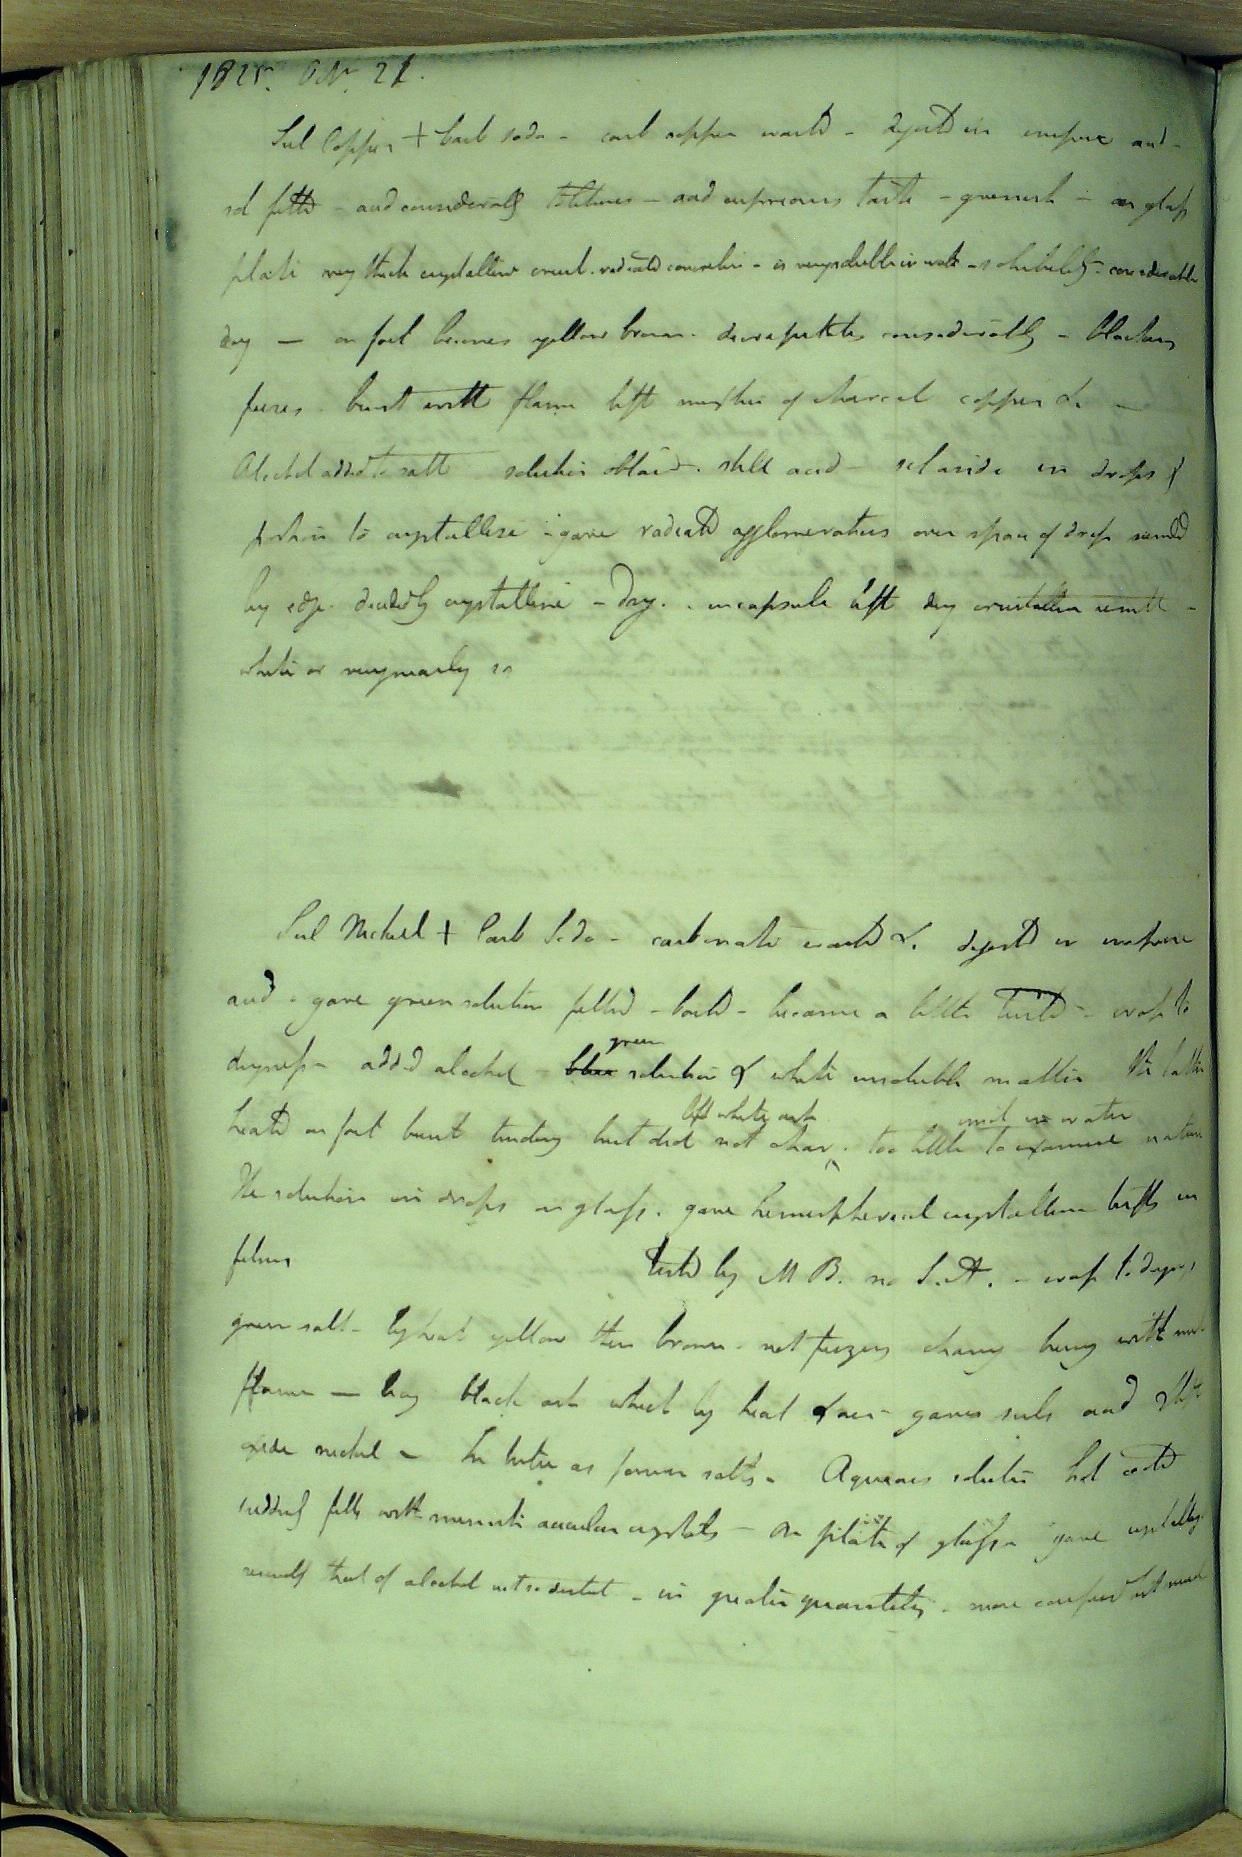 1825. Octr. 21.
Sul Copper + Carb soda - carb copper washd - digestd in impure acid -
sol filtd - and considerably bitterness - and cupreous taste - greenish - on glass
plate very thick crystalline crust. radiated concretion - is very soluble in water - solubility - considerable
dry — on foil becomes yellow brown - decrepitates considerably - blackens
fuses. burnt with flame left mixture of charcoal copper &c —
Alcohol added to salt solution obtaind. still acid - set aside in drops &
portion to crystallise - gave radiated agglomerations over space of drop
by edge. decidedly crystalline - Dry. in capsule left dry crystalline result -
white or very nearly so
Sul Nickel + Carb Soda - carbonate washd &c. digestd in impure
acid - gave green solution filtd - boild - became a little turbid - evap to
dryness - added alcohol - blue green solution & white insoluble matter the latter
heatd on foil burnt tindery but did not char left white ash. too little to examine nature insol in water
The solution in drops on glass. gave hemispherical crystalline tufts in
films
testd by M B. no S. A. - evap to dryness
green salt - by heat yellow then brown. not fuzing charring burng with
flame — leavg black ash which by heat & air - gave sul acid &
oxide nickel - In water as former salts - Aqueous solution hot coold
suddenly fills with minute acicular crystals - on plate of glass - gave
that of alcohol not so distinct - in greater quantity - more confused